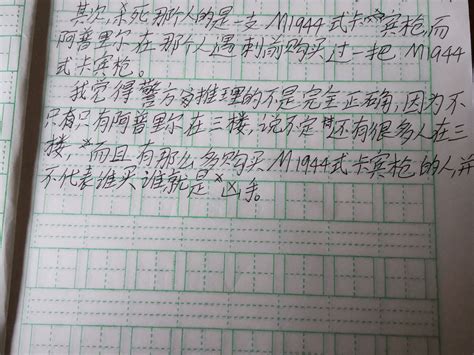 其次,杀死那个人的是一支M1944式卡宾枪,而
阿普里尔在那个人遇刺前购买过一把M1944
式卡宾枪。
我觉得警方的推理的不是完全正确,因为不
只有只有阿普里尔在三楼,说不定还有很多人在三
楼 而且有那么多购买M1944式卡宾枪的人,并
不代表谁买谁就是凶手。